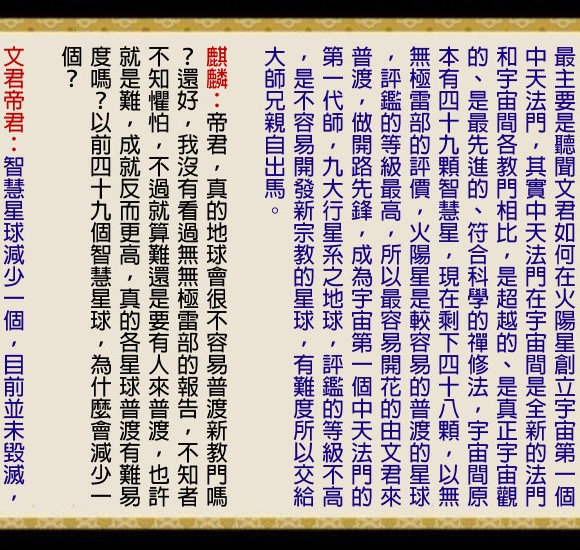 最主要是聽聞文君如何在火陽星創立宇宙第一個
中天法門，其實中天法門在宇宙間是全新的法門
和宇宙間各教門相比，是超越的、是真正宇宙觀
的、是最先進的、符合科學的禪修法，宇宙間原
本有四十九顆智慧星，現在剩下四十八顆，以無
無極雷部的評價，火陽星是較容易的普渡的星球
，評鑑的等級最高，所以最容易開花的由文君來
普渡，做開路先鋒，成為宇宙第一個中天法門的
第一代師，九大行星系之地球，評鑑的等級不高
，是不容易開發新宗教的星球，有難度所以交給
大師兄親自出馬。
麒麟：帝君，真的地球會很不容易普渡新教門嗎
？還好，我沒有看過無無極雷部的報告，不知者
不知懼怕，不過就算難還是要有人來普渡，也許
就是難，成就反而更高，真的各星球普渡有難易
度嗎？以前四十九個智慧星球，為什麼會減少一
個？
文君帝君：智慧星球減少一個，目前並未毀滅，